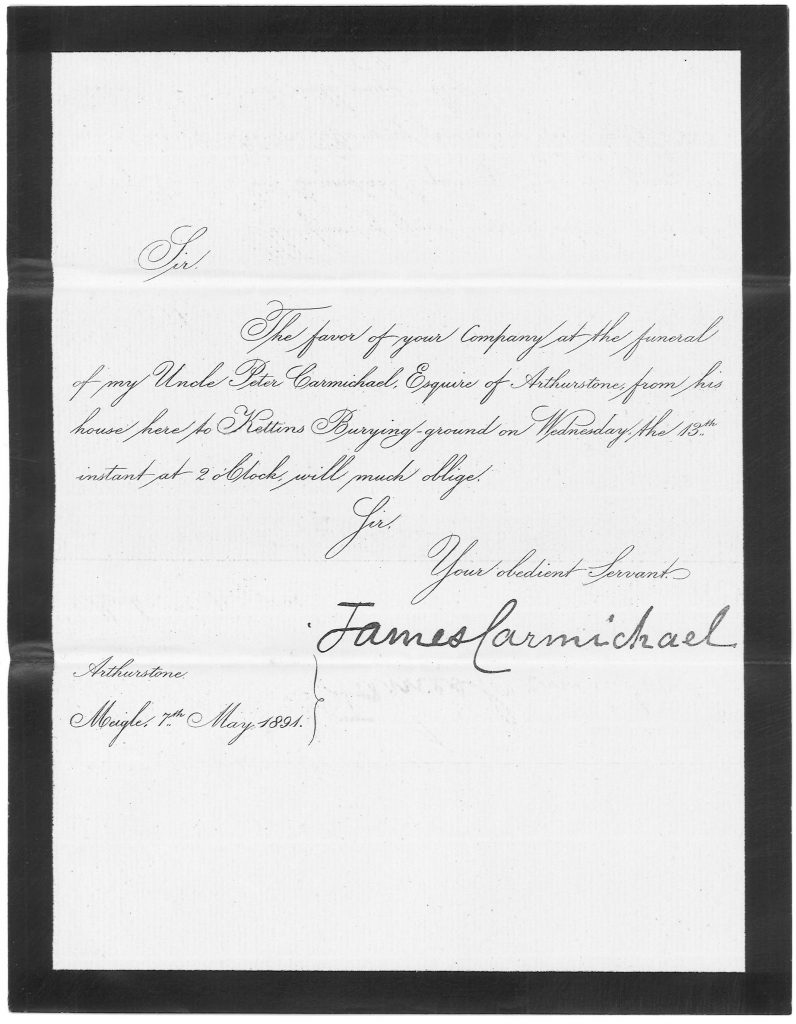 Sir.
The favor of your Company at the funeral
of my Uncle Peter Carmichael, Esquire of Arthurstone, from his
house here to Kettins Burying-ground on Wednesday, the 13th
instant at 2 o'Clock, will much oblige.
Sir.
Your obedient Servant.
James Carmichael
Arthurstone.
Meigle, 7th May 1891.